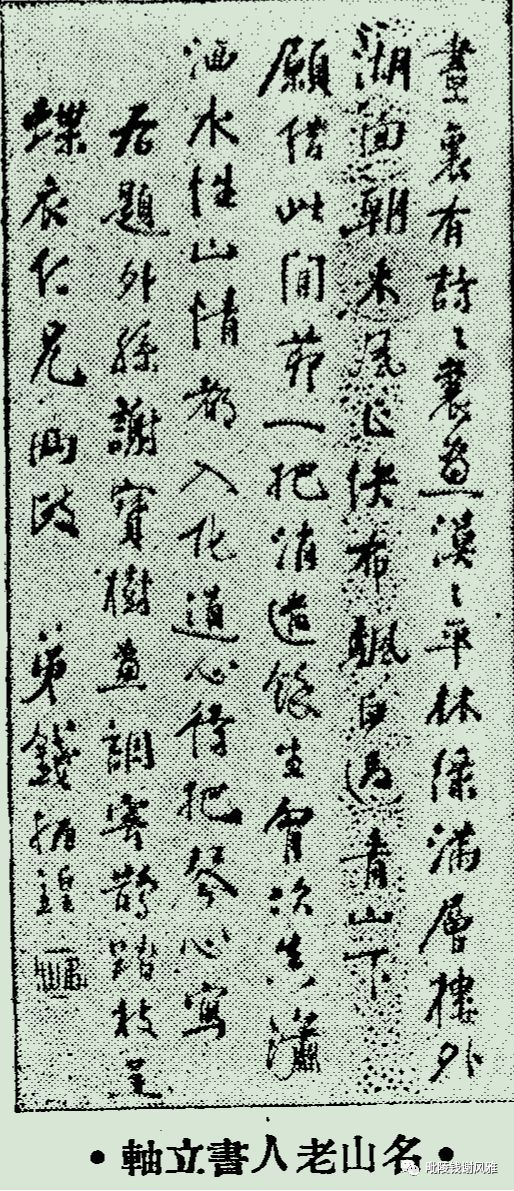 畫裏有詩〻裏畫漠〻平林綠滿層樓外
湖面朝來風正快布颿過青山下
願借此間茆一把消遣餘生胷次真瀟
洒水性山情都入化道心待把琴心寫
右題外孫謝寶樹畫調寄鵲踏枝呈
蝶衣仁兄兩政 弟錢振鍠
•名山老人書立軸•
毗陵钱谢风雅